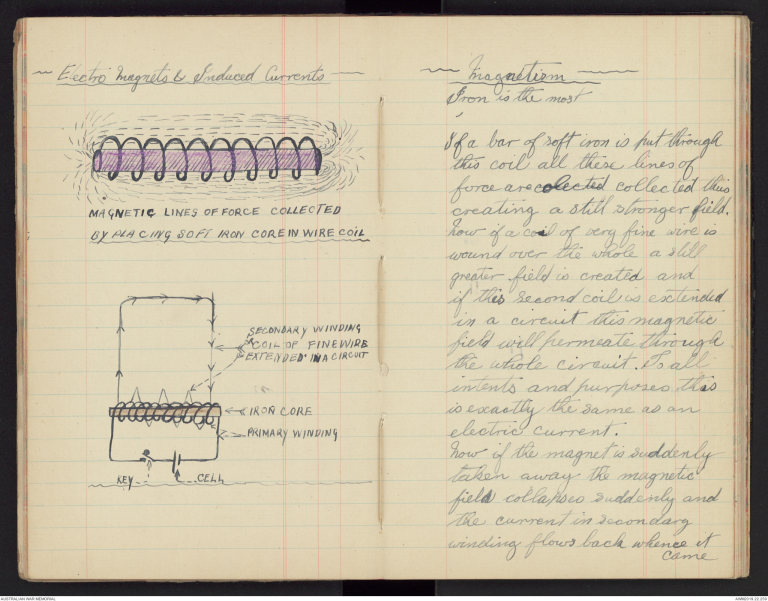 Electro Magnets & Induced Currents
MAGNETIC LINES OF FORCE COLLECTED
BY PLACING SOFT IRON CORE IN WIRE COIL
SECONDARY WINDING
COIL OF FINE WIRE
EXTENDED IN A CIRCUIT
IRON CORE
PRIMARY WINDING
KEY
CELL
Magnetism
Iron is the most
If a bar of soft iron is put through
this coil all these lines of
force are colected collected this
creating a still stronger field.
Now if a coil of very fine wire is
wound over the whole a still
greater field is created and
if this second coil is extended
in a circuit this magnetic
field will permeate through
the whole circuit. To all
intents and purposes this
is exactly the same as an
electric current.
Now if the magnet is suddenly
taken away the magnetic
field collapses suddenly and
the current in secondary
winding flows back whence it
came
AUSTRALIAN WAR MEMORIAL